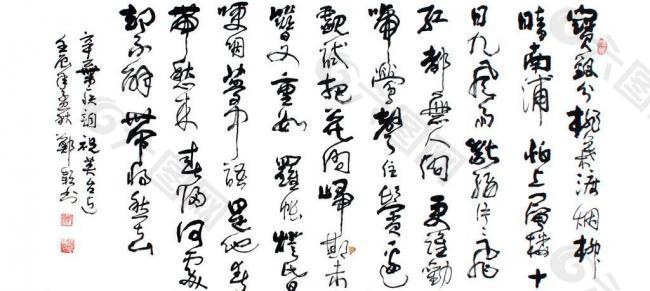 寶釵分桃葉渡烟柳
暗南浦怕上層樓十
日九風雨斷腸片片飛
紅都無人管更誰勸
啼鶯聲住鬢邊
覷試把花卜歸期才
簪又重數羅帳燈昏
哽咽夢中語是他春
帶愁來春歸何處
却不解帶將愁去
辛棄疾詞祝英台近
壬辰年孟秋鄭書